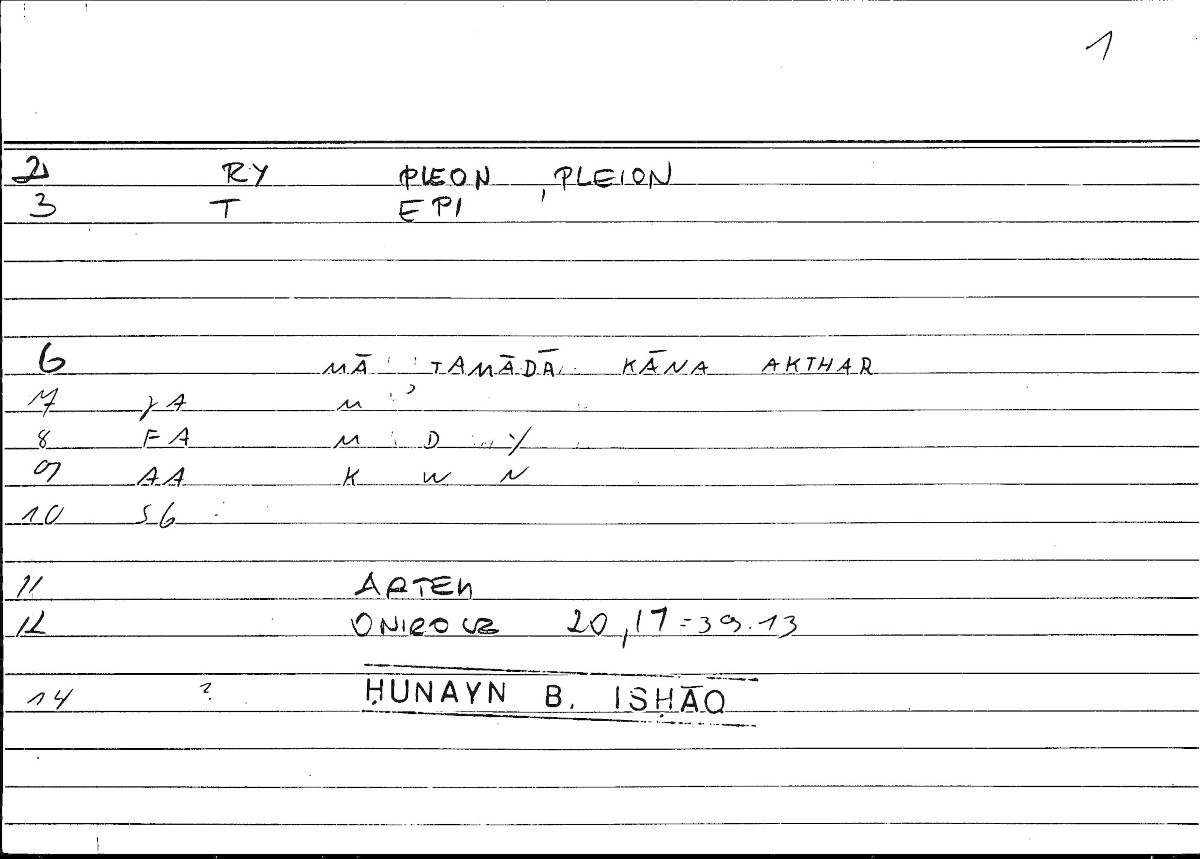 1
2 RY PLEON , PLEION
3 T EPI
6 MĀ TAMĀDĀ KĀNA AKTHAR
7 M ʾ
8 FA M D Y
9 AA K W N
10 SG
11 ARTEM
12 ONIROCR 20,17=39.13
14 ? ḤUNAYN B. ISḤĀQ